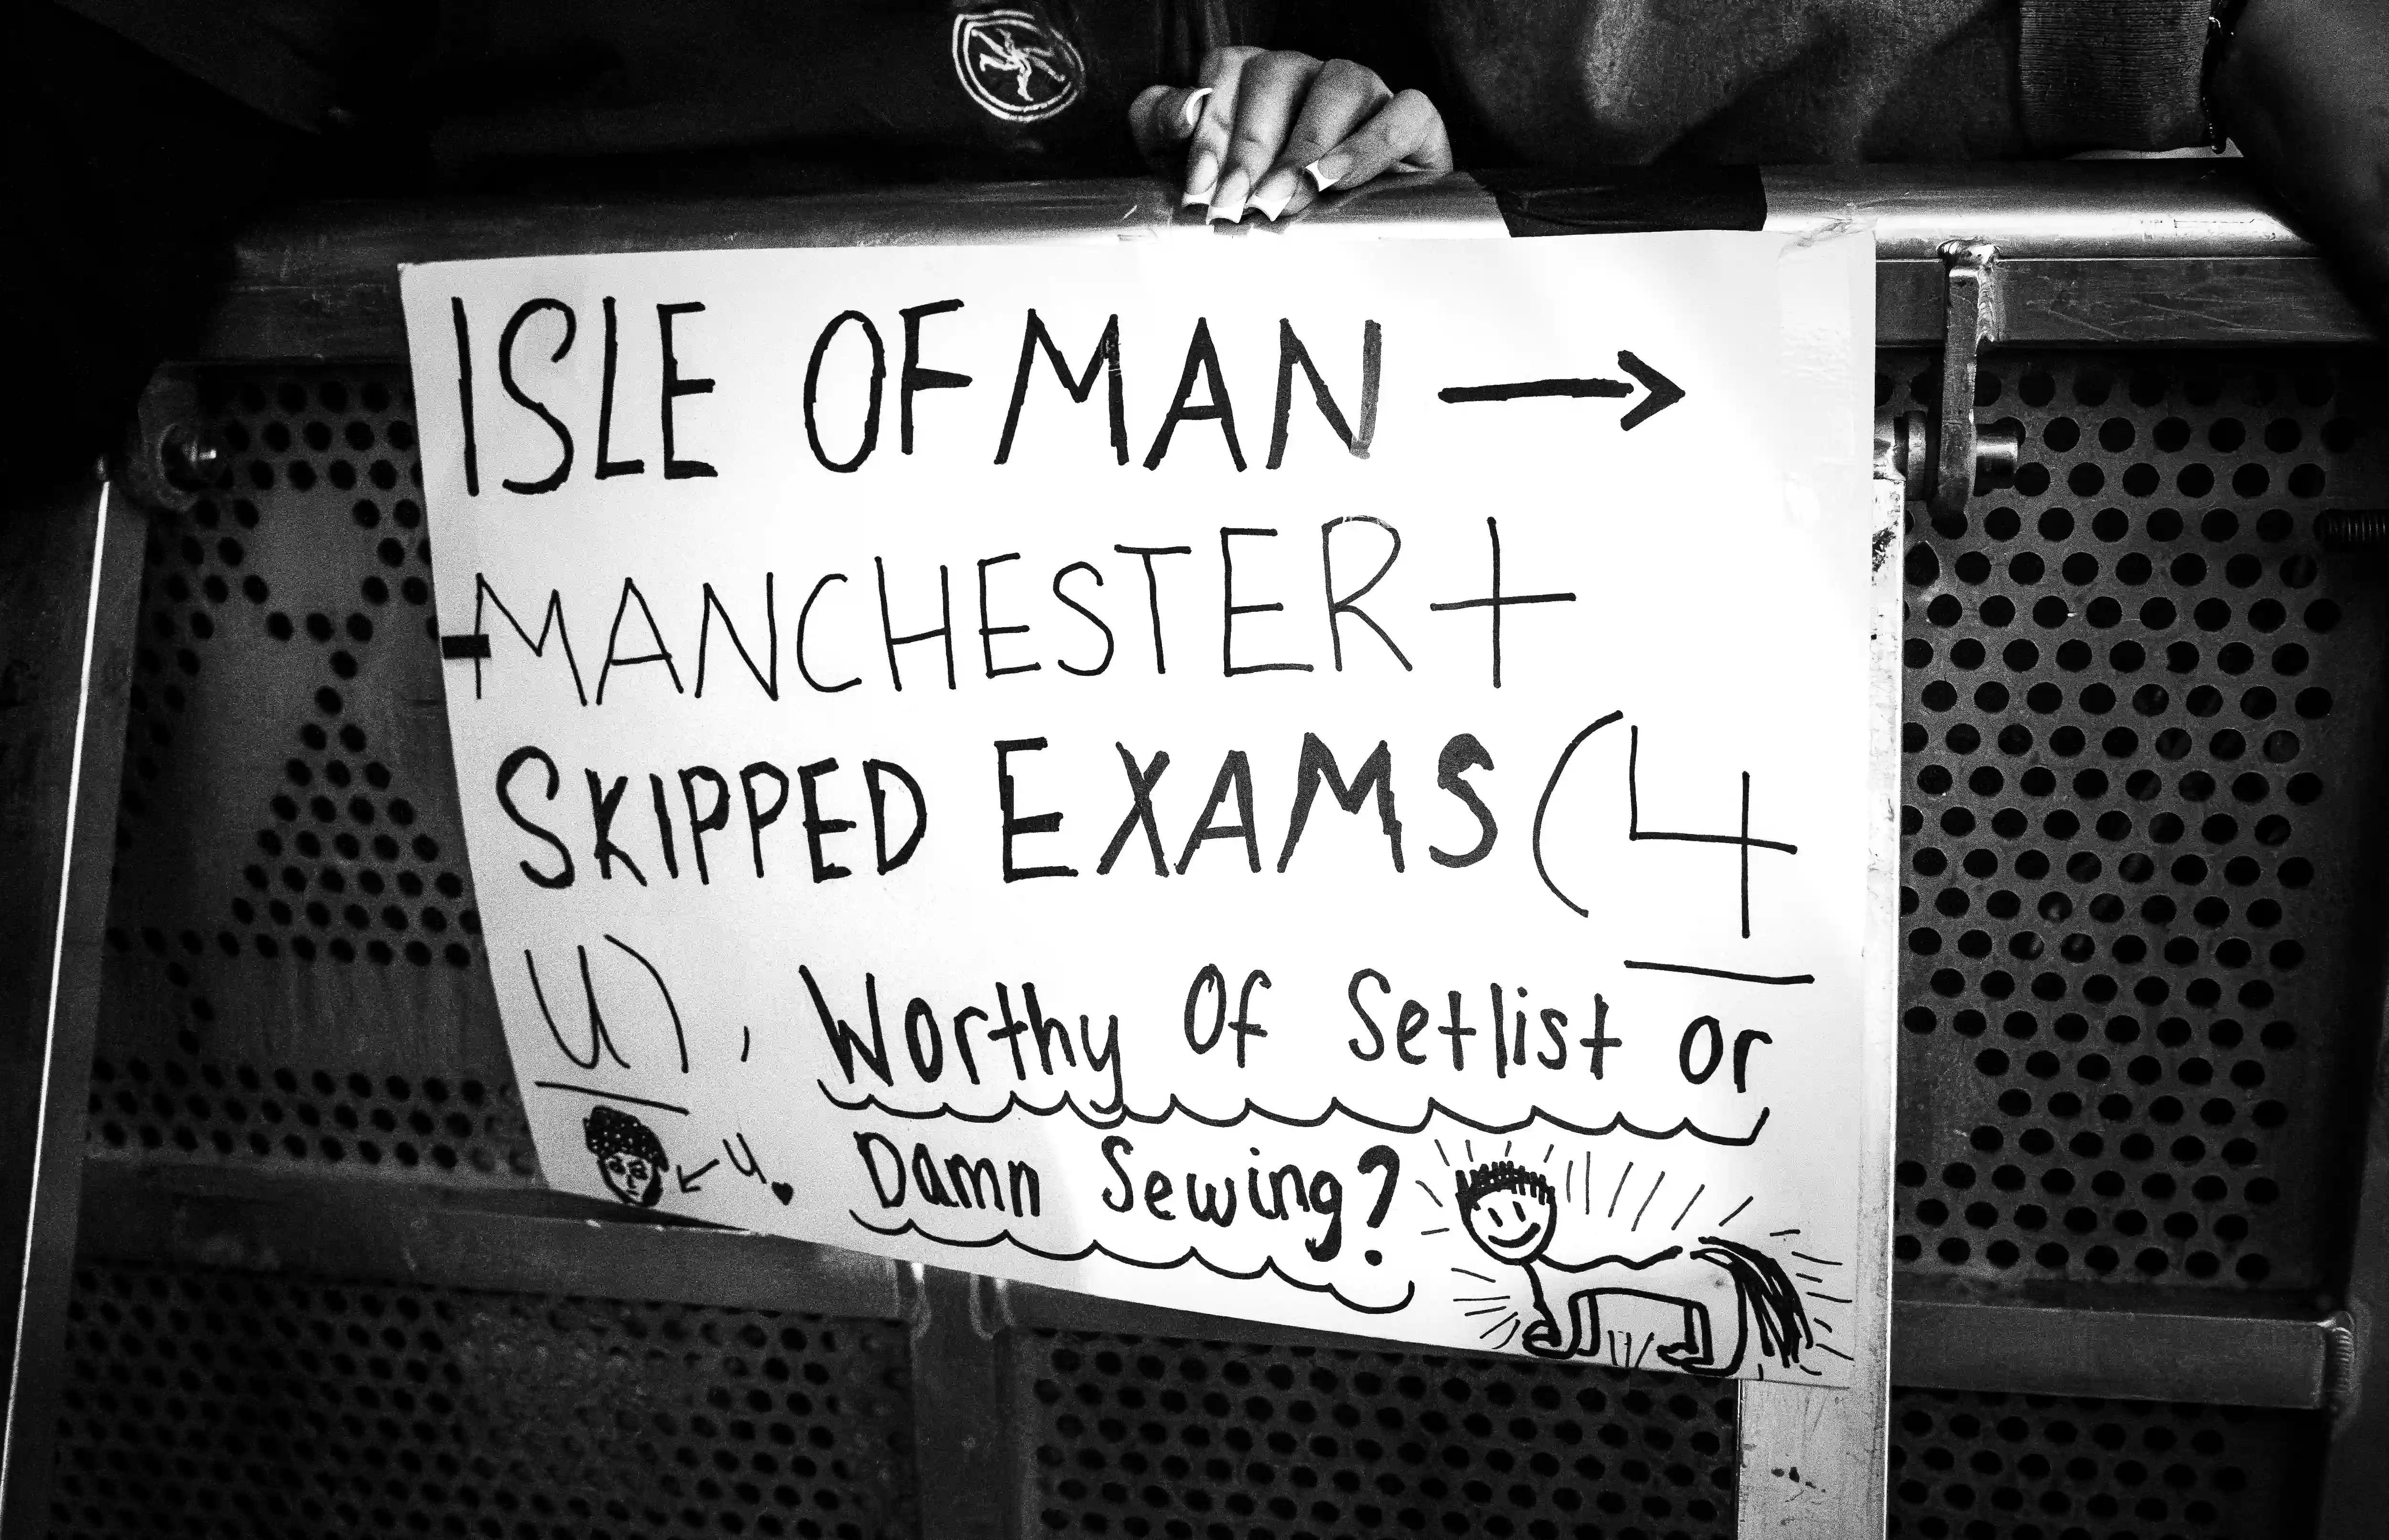 ISLE OF MAN →
+MANCHESTER+
SKIPPED EXAMS (4
U), Worthy Of Setlist or
u. Damn Sewing?